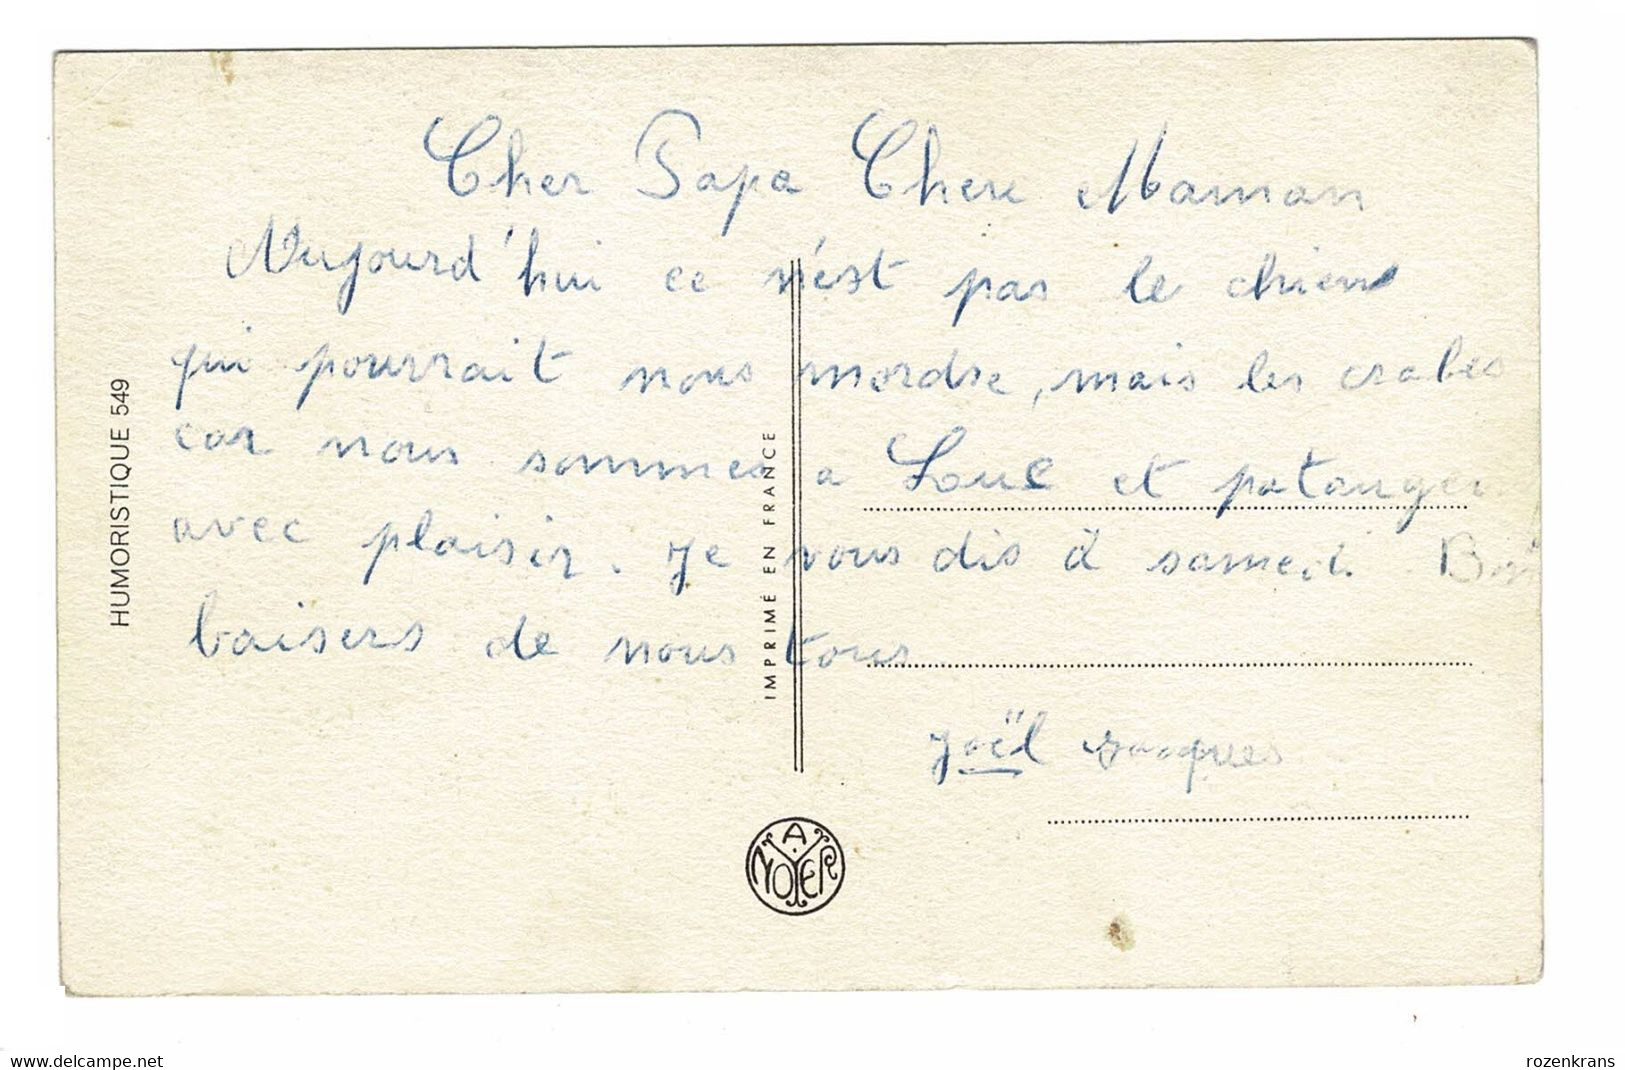 Cher Papa Chere Maman
Aujourd'hui ce n'est pas le chien
qui pourrait nous mordre, mais les crabes
car nous sommes a Luc et patauger
avec plaisir. Je vous dis à samedi Bons
baisers de nous tous
Joël Jacques
HUMORISTIQUE 549
IMPRIMÉ EN FRANCE
A. NOYER
www.delcampe.net
rozenkrans